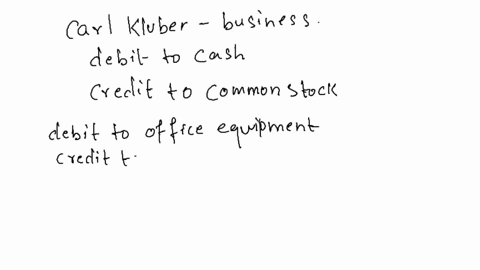 Carl Kluber - business.
debit to cash
credit to common stock
debit to office equipment
credit t